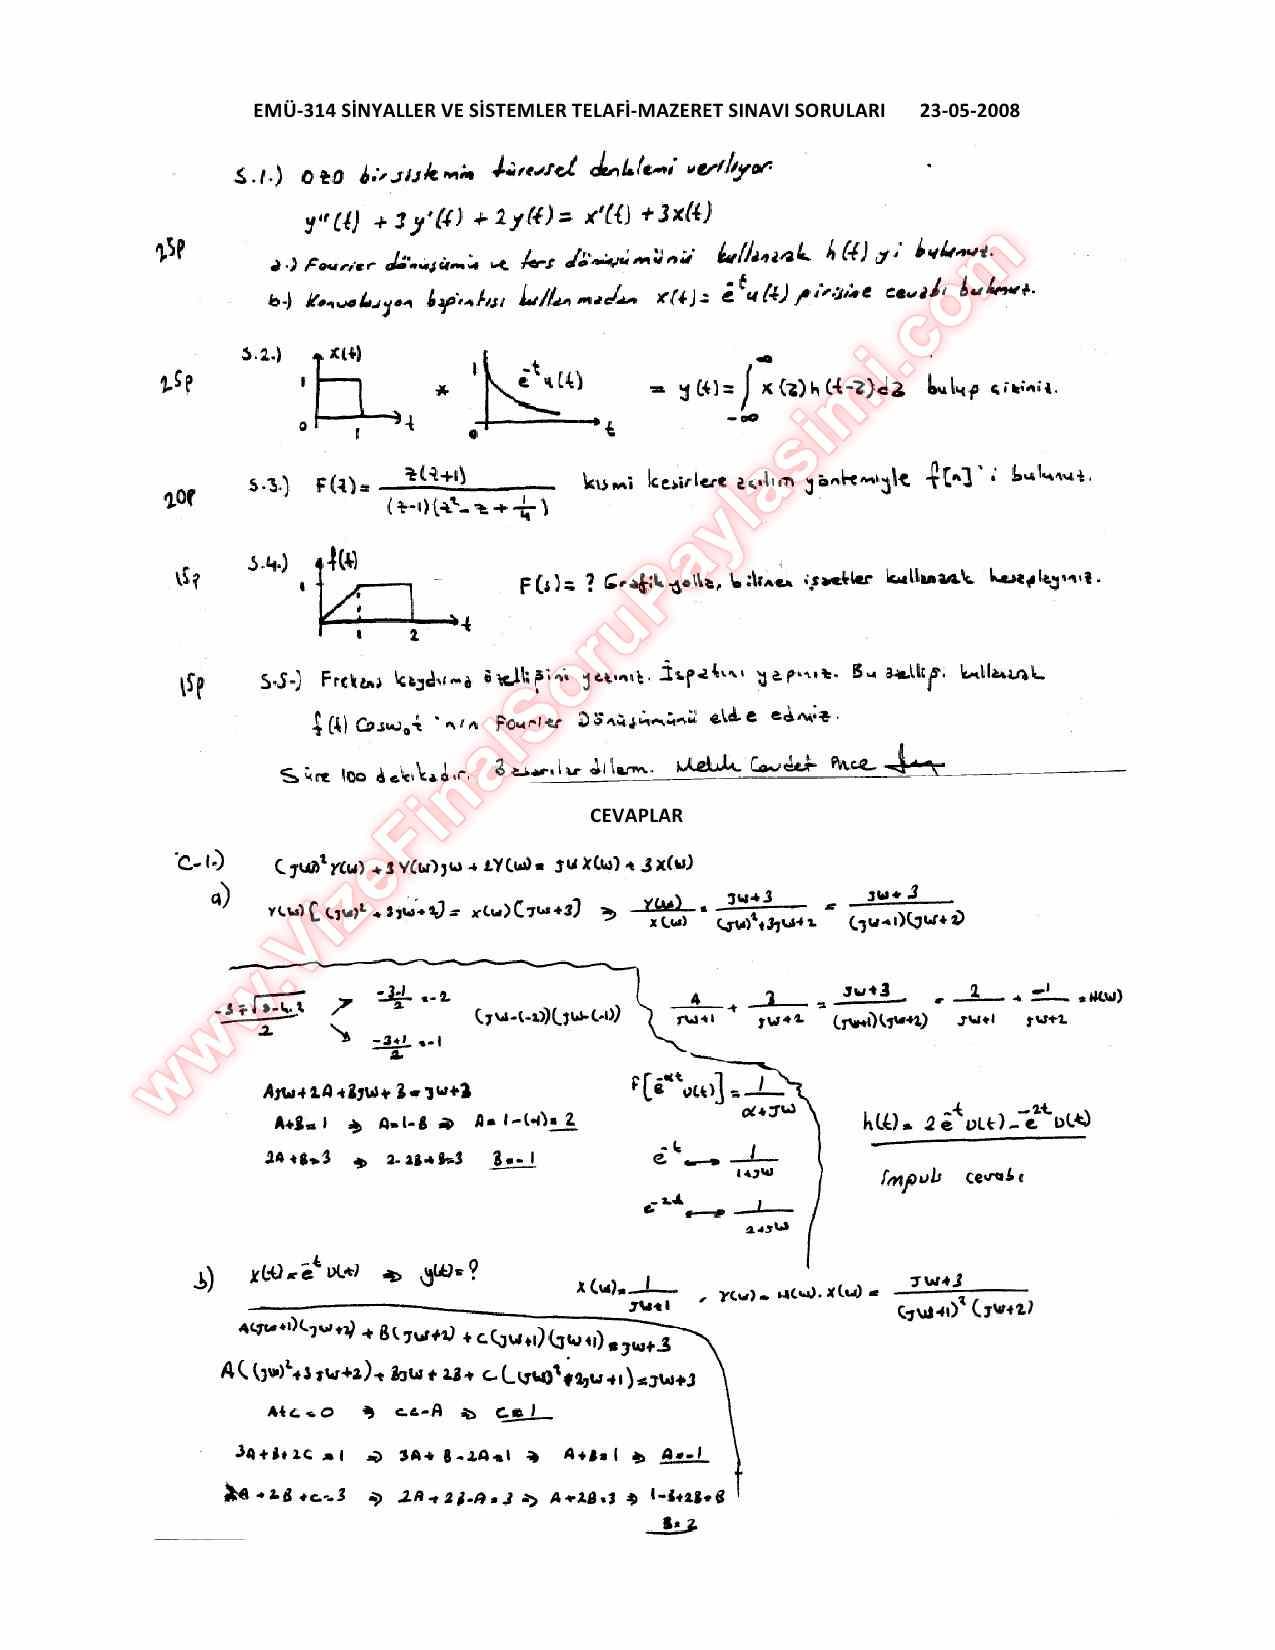 EMÜ-314 SİNYALLER VE SİSTEMLER TELAFİ-MAZERET SINAVI SORULARI 23-05-2008
S.1.) DZD bir sistemin türevsel denklemi veriliyor.
y''(t) + 3y'(t) + 2y(t) = x'(t) + 3x(t)
25p
a-) Fourier dönüşümü ve ters dönüşümünü kullanarak h(t) yi bulunuz.
b-) Konvolusyon bağıntısı kullanmadan x(t) = e^-t u(t) girişine cevabı bulunuz.
25p
S.2.) x(t) 1 0 1 t * 1 e^-t u(t) 0 t = y(t) = ∫_-∞^∞ x(z)h(t-z)dz bulup çiziniz.
20p
S.3.) F(z) = z(z+1) / (z-1)(z²-z+1/4) kısmi kesirlere açılım yöntemiyle f[n]'i bulunuz.
15p
S.4.) f(t) 1 1 2 t F(s) = ? Grafik yolla, bilinen işaretler kullanarak hesaplayınız.
15p
S.5-) Frekans kaydırma özelliğini yazınız. İspatını yapınız. Bu özelliği kullanarak
f(t) Cosw₀t 'nin Fourier Dönüşümünü elde ediniz.
Süre 100 dakikadır. Başarılar dilerim.
CEVAPLAR
C-1.) (jw)²Y(w) + 3Y(w)jw + 2Y(w) = jwX(w) + 3X(w)
a) Y(w)[(jw)² + 3jw + 2] = X(w)[jw+3] ⇒ Y(w)/X(w) = jw+3 / (jw)²+3jw+2 = jw+3 / (jw+1)(jw+2)
-3∓√9-4.2 / 2 -3-1/2 = -2 (jw-(-2))(jw-(-1)) A/jw+1 + B/jw+2 = jw+3/(jw+1)(jw+2) = 2/jw+1 + -1/jw+2 = H(w)
-3+1/2 = -1
Ajw+2A+Bjw+B=jw+3 F[e^-αt u(t)] = 1/α+jw
A+B=1 ⇒ A=1-B ⇒ A=1-(-1)=2 h(t) = 2e^-t u(t) - e^-2t u(t)
2A+B=3 ⇒ 2-2B+B=3 B=-1 e^-t ↔ 1/1+jw
İmpuls cevabı
e^-2t ↔ 1/2+jw
b) x(t) = e^-t u(t) ⇒ y(t) = ? X(w) = 1/jw+1 , Y(w) = H(w).X(w) = jw+3 / (jw+1)²(jw+2)
A(jw+1)(jw+2) + B(jw+2) + C(jw+1)(jw+1) = jw+3
A((jw)²+3jw+2) + Bjw + 2B + C((jw)²+2jw+1) = jw+3
A+C=0 ⇒ C=-A ⇒ C=1
3A+B+2C=1 ⇒ 3A+B-2A=1 ⇒ A+B=1 ⇒ A=-1
2A+2B+C=3 ⇒ 2A+2B-A=3 ⇒ A+2B=3 ⇒
B=2
www.VizeFinalSoruPaylasimi.com